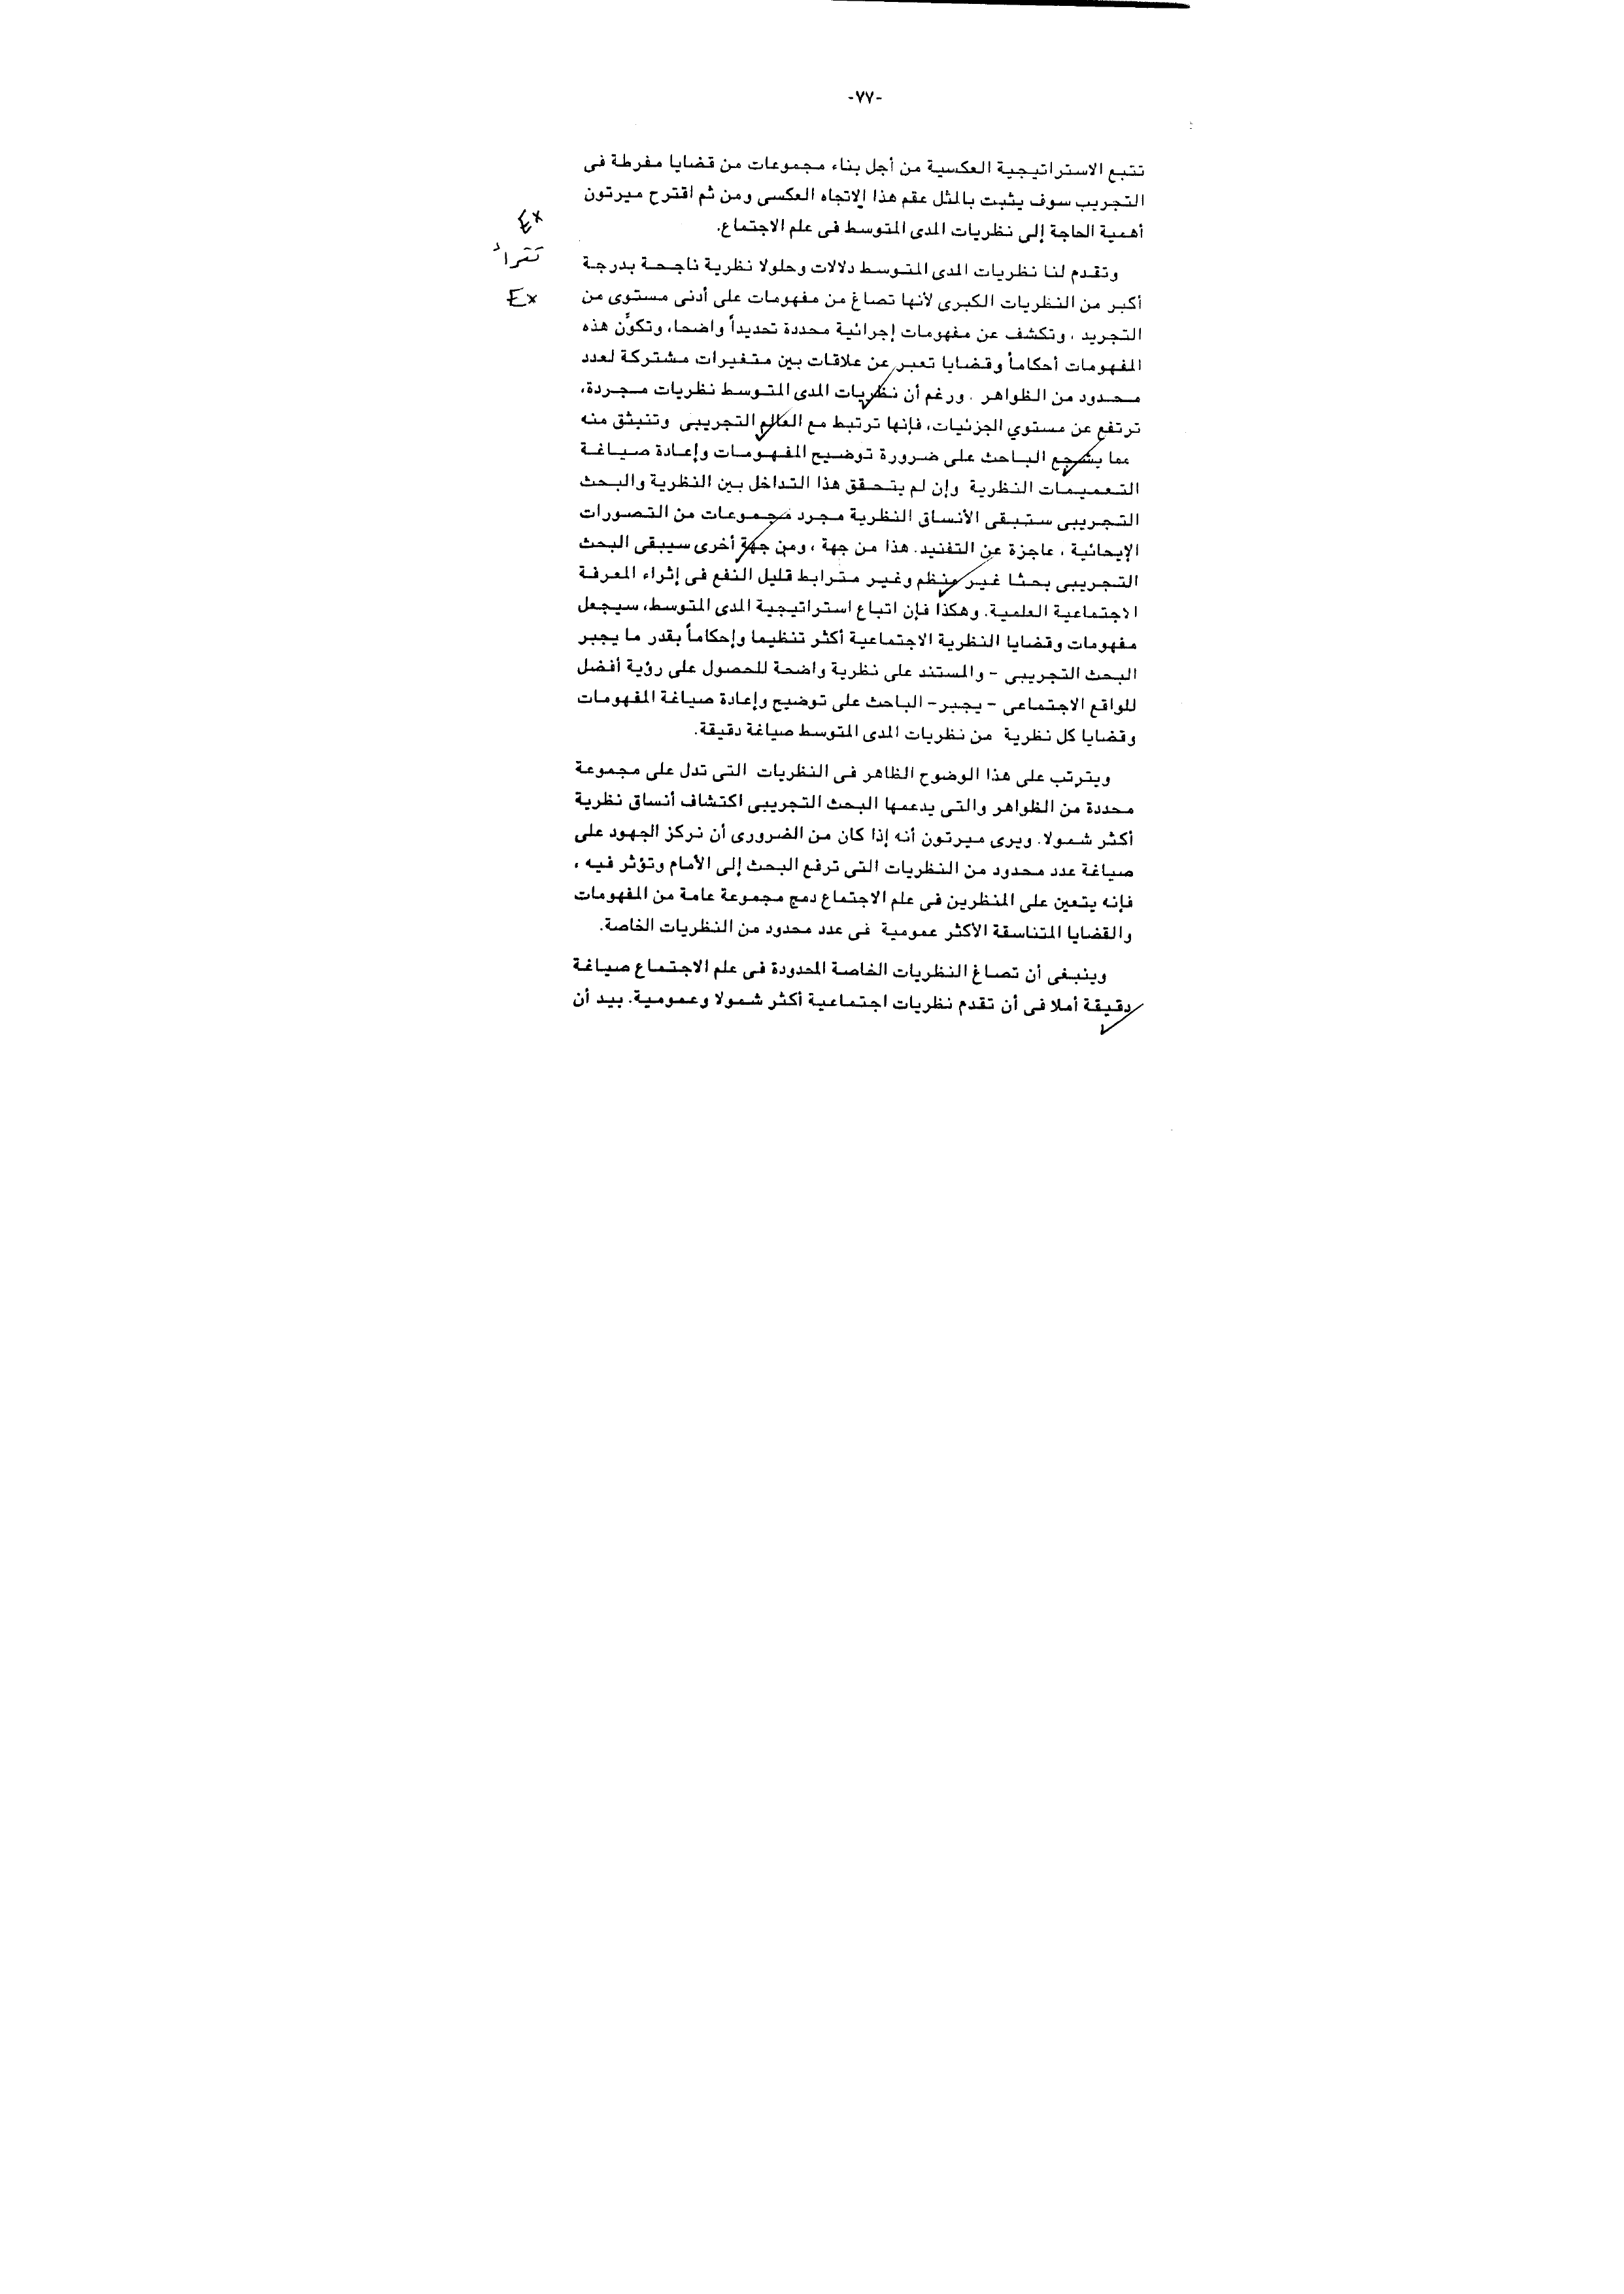 -٧٧-
تتبع الاستراتيجية العكسية من أجل بناء مجموعات من قضايا مفرطة فى
التجريب سوف يثبت بالمثل عقم هذا الاتجاه العكسى ومن ثم اقترح ميرتون
أهمية الحاجة إلى نظريات المدى المتوسط فى علم الاجتماع.
Ex
Ex
وتقدم لنا نظريات المدى المتوسط دلالات وحلولا نظرية ناجحة بدرجة
أكبر من النظريات الكبرى لأنها تصاغ من مفهومات على أدنى مستوى من
التجريد ، وتكشف عن مفهومات إجرائية محددة تحديداً واضحا، وتكوِّن هذه
المفهومات أحكاماً وقضايا تعبر عن علاقات بين متغيرات مشتركة لعدد
محدود من الظواهر . ورغم أن نظريات المدى المتوسط نظريات مجردة،
ترتفع عن مستوي الجزئيات، فإنها ترتبط مع العالم التجريبى وتنبثق منه
مما يشجع الباحث على ضرورة توضيح المفهومات وإعادة صياغة
التعميمات النظرية وإن لم يتحقق هذا التداخل بين النظرية والبحث
التجريبى ستبقى الأنساق النظرية مجرد مجموعات من التصورات
الإيحائية ، عاجزة عن التفنيد. هذا من جهة ، ومن جهة أخرى سيبقى البحث
التجريبى بحثا غير منظم وغير مترابط قليل النفع فى إثراء المعرفة
الاجتماعية العلمية. وهكذا فإن اتباع استراتيجية المدى المتوسط، سيجعل
مفهومات وقضايا النظرية الاجتماعية أكثر تنظيما وإحكاماً بقدر ما يجبر
البحث التجريبى - والمستند على نظرية واضحة للحصول على رؤية أفضل
للواقع الاجتماعى - يجبر- الباحث على توضيح وإعادة صياغة المفهومات
وقضايا كل نظرية من نظريات المدى المتوسط صياغة دقيقة.
ويترتب على هذا الوضوح الظاهر فى النظريات التى تدل على مجموعة
محددة من الظواهر والتى يدعمها البحث التجريبى اكتشاف أنساق نظرية
أكثر شمولا. ويرى ميرتون أنه إذا كان من الضرورى أن نركز الجهود على
صياغة عدد محدود من النظريات التى ترفع البحث إلى الأمام وتؤثر فيه ،
فإنه يتعين على المنظرين فى علم الاجتماع دمج مجموعة عامة من المفهومات
والقضايا المتناسقة الأكثر عمومية فى عدد محدود من النظريات الخاصة.
وينبغى أن تصاغ النظريات الخاصة المحدودة فى علم الاجتماع صياغة
دقيقة أملا فى أن تقدم نظريات اجتماعية أكثر شمولا وعمومية. بيد أن